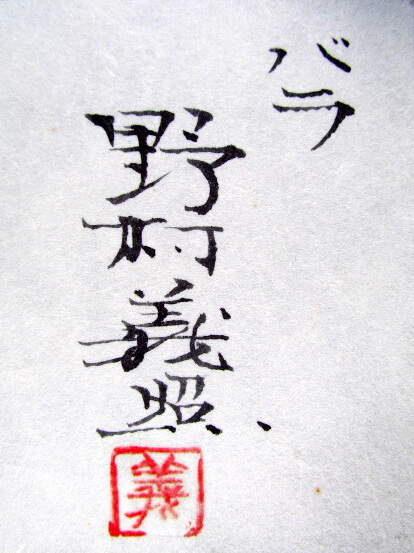 バラ
野村義照
義